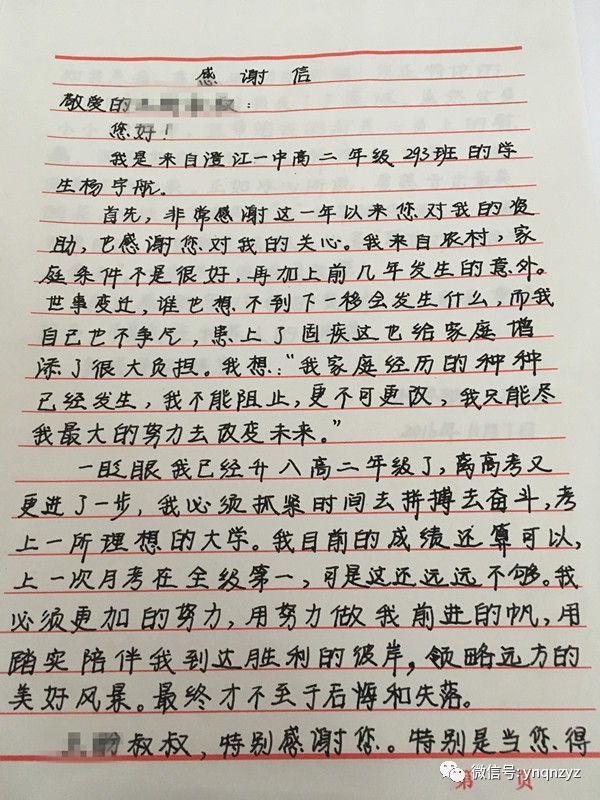 感谢信
敬爱的叔叔：
您好！
我是来自澄江一中高二年级293班的学
生杨宇航。
首先，非常感谢这一年以来您对我的资
助，也感谢您对我的关心。我来自农村，家
庭条件不是很好，再加上前几年发生的意外。
世事变迁，谁也想不到下一秒会发生什么，而我
自己也不争气，患上了固疾这也给家庭增
添了很大负担。我想：“我家庭经历的种种
已经发生，我不能阻止，更不可更改，我只能尽
我最大的努力去改变未来。”
一眨眼我已经升入高二年级了，离高考又
更进了一步，我必须抓紧时间去拼搏去奋斗，考
上一所理想的大学。我目前的成绩还算可以，
上一次月考在全级第一，可是这还远远不够。我
必须更加的努力，用努力做我前进的帆，用
踏实陪伴我到达胜利的彼岸，领略远方的
美好风景。最终才不至于后悔和失落。
叔叔，特别感谢您。特别是当您得
第 页
微信号: ynqnzyz